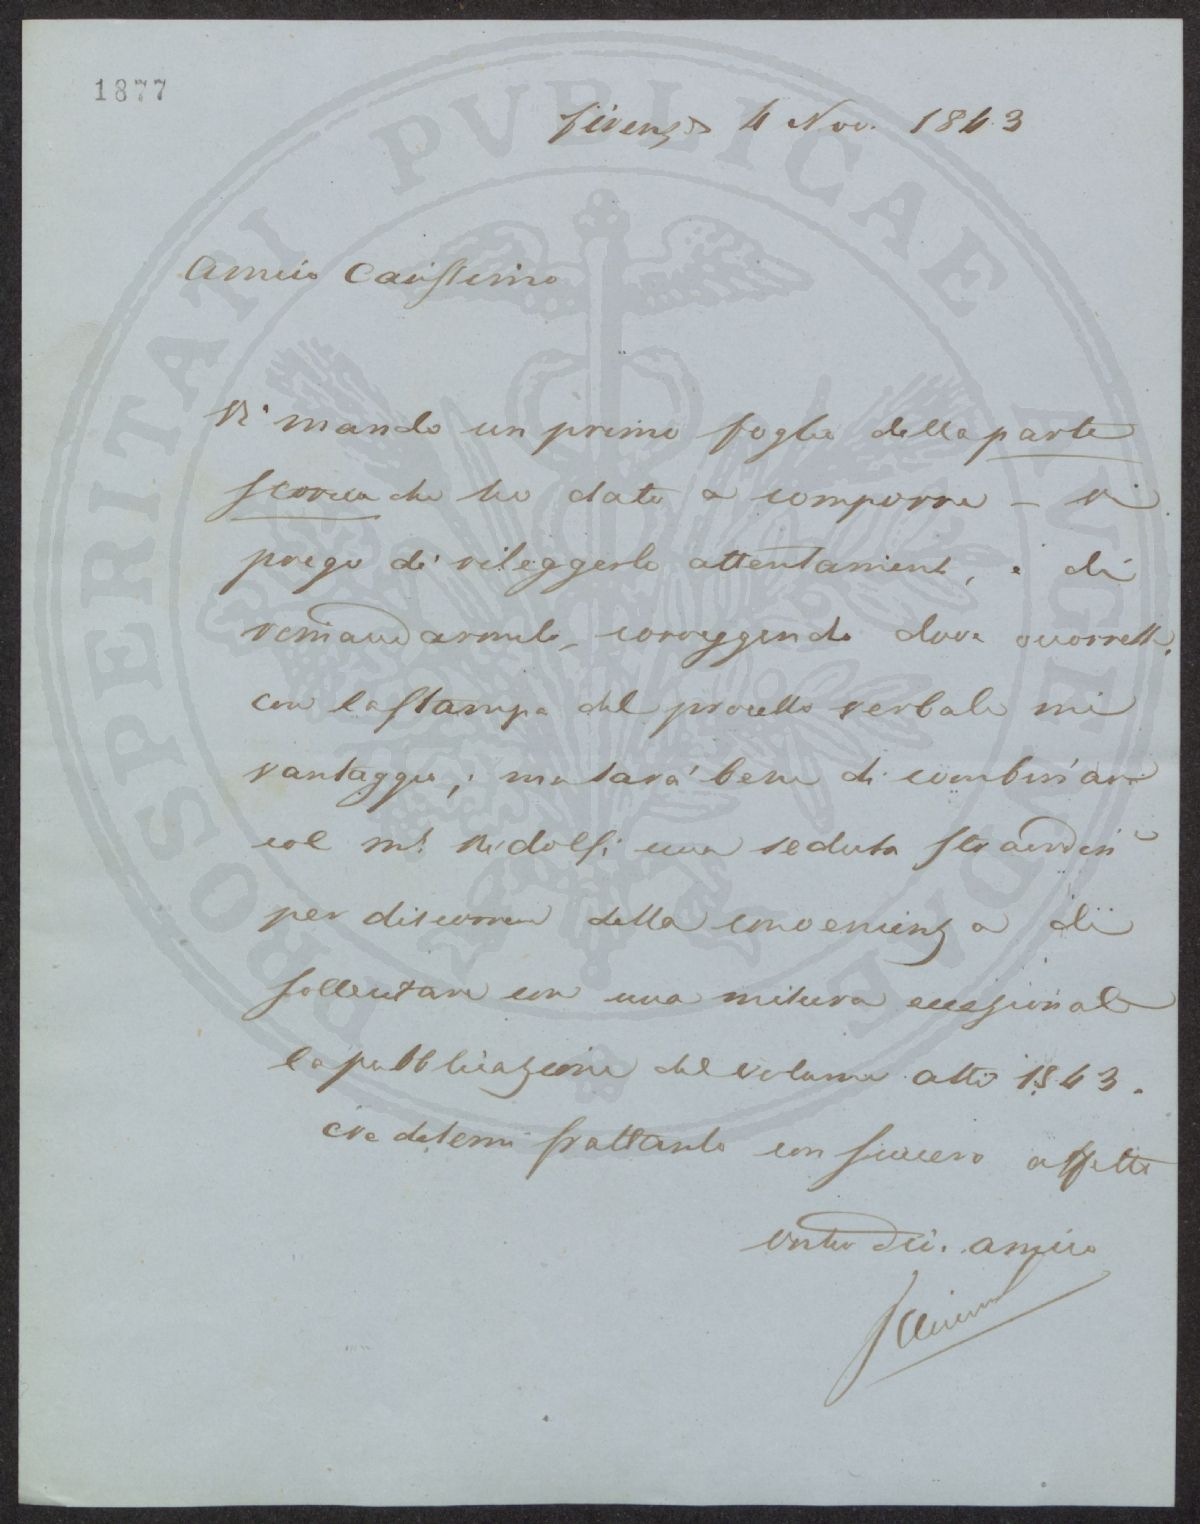 1877
Firenze 4 Nov. 1843
PROSPERITATI PVBLICAE AVGENDAE
Amico Carissimo
Vi mando un primo foglio della parte
storica che ho dato a comporre – vi
prego di rileggerlo attentamente, e di
rimandarmelo, correggendo dove occorresse,
con la stampa del processo verbale mi
vantaggio; ma sarà bene di combinare
col M.se Ridolfi una seduta straordin
per discorrere della convenienza di
sollecitare con una misura eccezionale
la pubblicazione del volume atti 1843.
Credetemi frattanto con sincero affetto
vostro amico